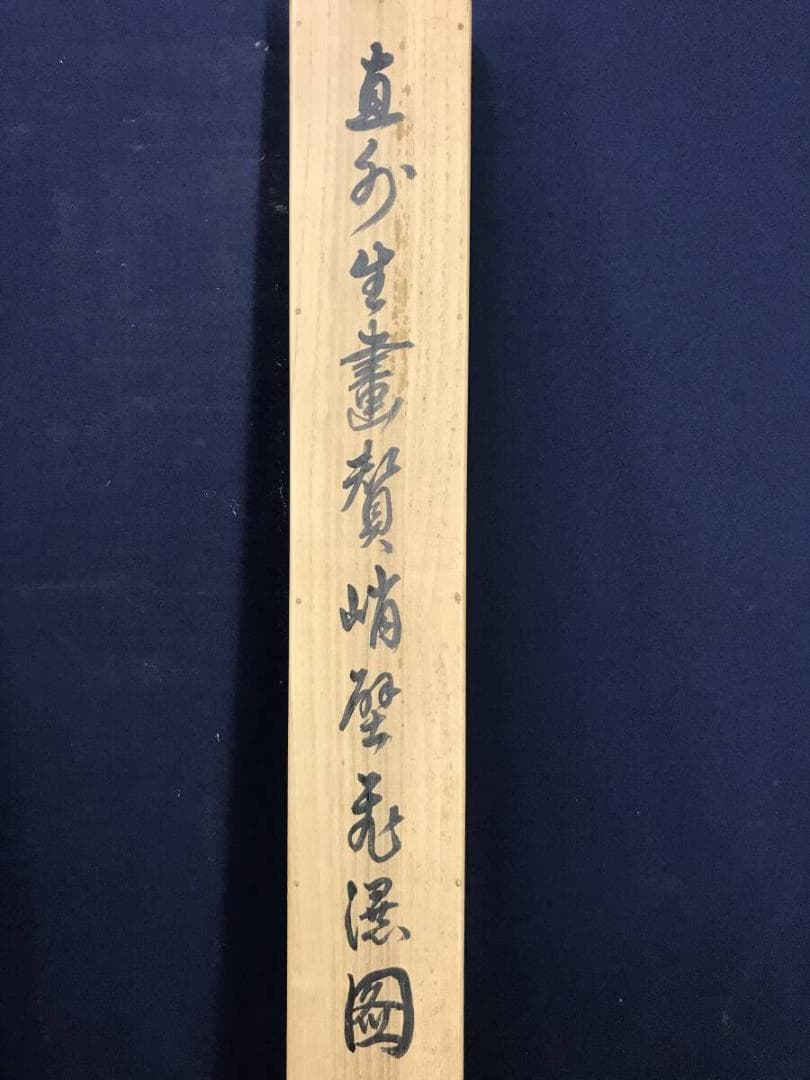 直外生畫贊峭壁飛瀑圖